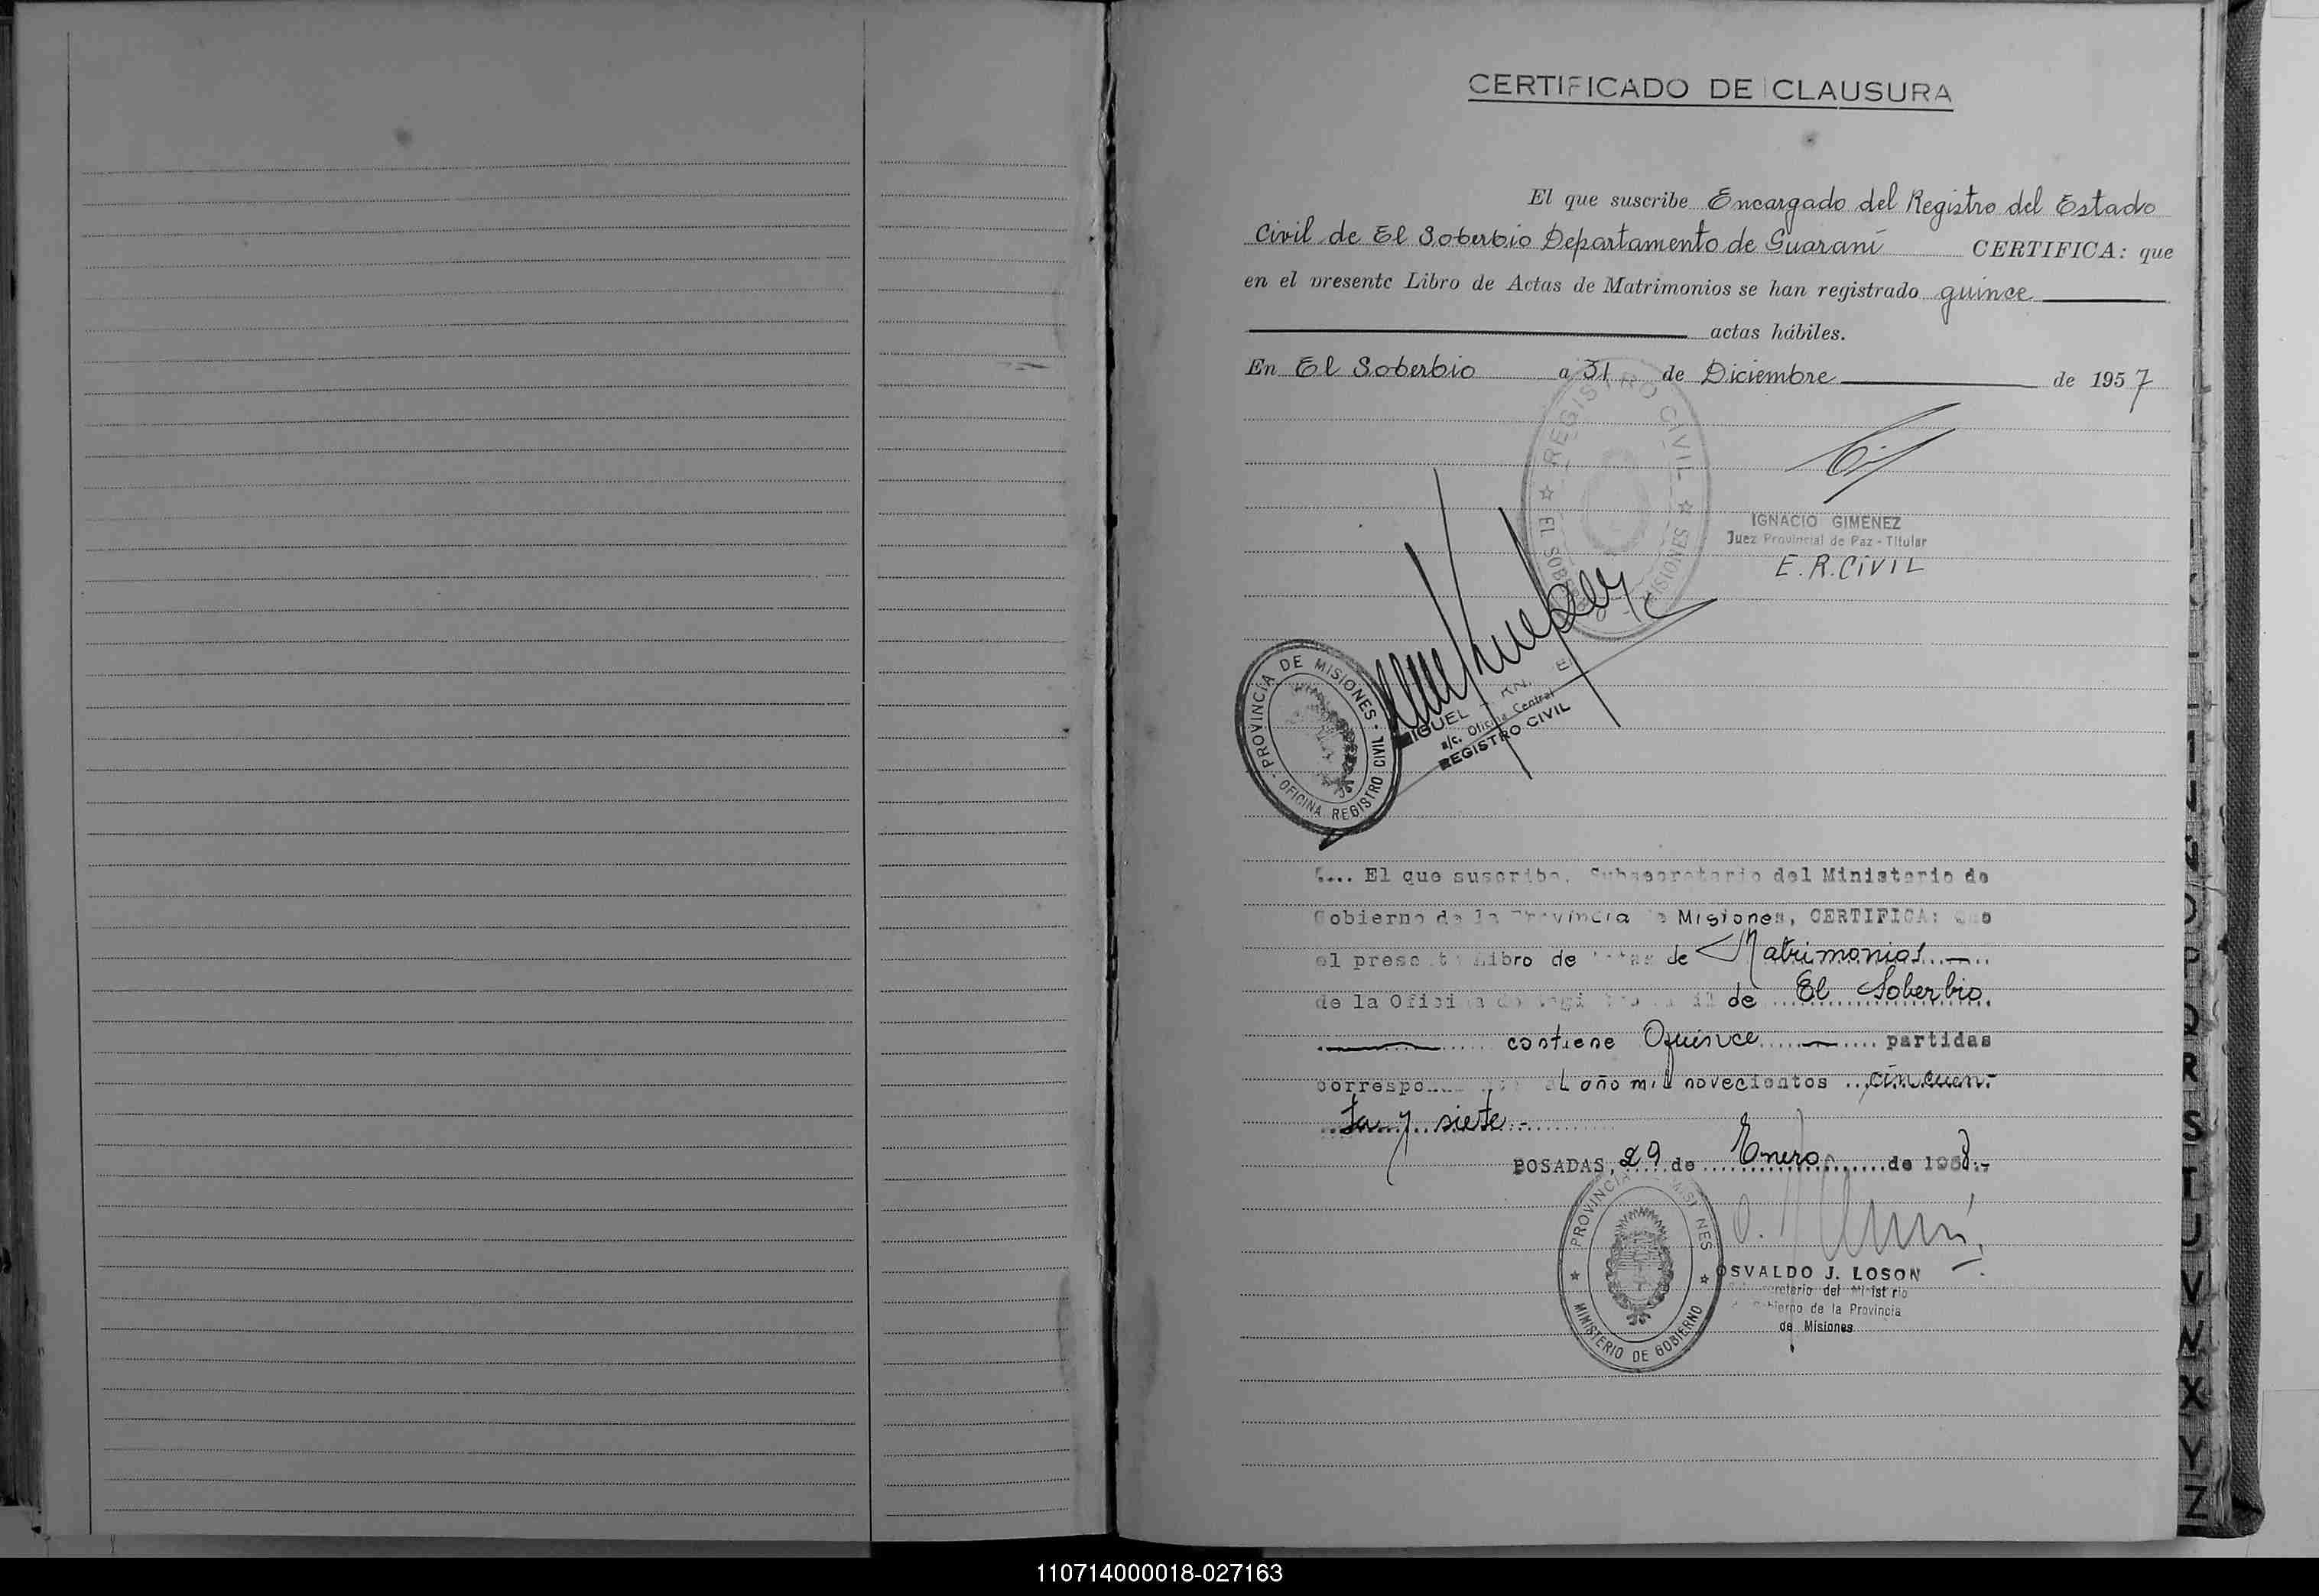 CERTIFICADO DE CLAUSURA
El que suscribe Encargado del Registro del Estado
Civil de El Soberbio Departamento de Guaraní CERTIFICA: que
en el presente Libro de Actas de Matrimonios se han registrado quince
actas hábiles.
En El Soberbio a 31 de Diciembre de 1957
REGISTRO CIVIL
EL SOBERBIO - MISIONES
IGNACIO GIMENEZ
Juez Provincial de Paz - Titular
E. R. CIVIL
PROVINCIA DE MISIONES - OFICINA REGISTRO CIVIL
MIGUEL
a/c. Oficina Central
REGISTRO CIVIL
.... El que suscribe, Subsecretario del Ministerio de
Gobierno de la Provincia de Misiones, CERTIFICA: Que
el presente Libro de Actas de Matrimonios
de la Oficina de Registro Civil de El Soberbio.
contiene Quince partidas
al año mil novecientos cincuen-
ta y siete.-
POSADAS, 29 de Enero de 1958.-
PROVINCIA DE MISIONES
MINISTERIO DE GOBIERNO
OSVALDO J. LOSON
Subsecretario del Ministerio
de Gobierno de la Provincia
de Misiones
O
P
Q
R
S
T
U
V
W
X
Y
Z
110714000018-027163